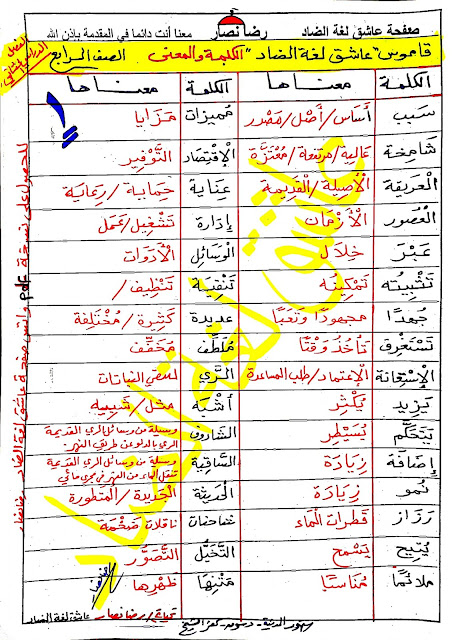 صفحة عاشق لغة الضاد رضا نصار معنا أنت دائما في المقدمة بإذن الله
قاموس "عاشق لغة الضاد" "الكلمة والمعنى" الصف الرابع
الفصل الدراسي الثاني
الكلمة معناها الكلمة معناها
سبب أساس/أصل/مصدر مميزات مزايا
شامخة عالية/مرتفعة/معتزة الاقتصاد التوفير
العريقة الأصيلة/القديمة عناية حماية/رعاية
العصور الأزمان إدارة تشغيل/عمل
عبر خلال الوسائل الأدوات
تثبيته تمكينه تنقية تنظيف/
جهدا مجهودا وتعبا عديدة كثيرة/مختلفة
تستغرق تأخذ وقتا ملطف مخفف
الاستعانة الاعتماد/طلب المساعدة الري لسقي النباتات
يزيد يكثر أشبه مثل/شبيه
يتحكم يسيطر الشادوف وسيلة من وسائل الري القديمة
الري بالدلو عن طريق النهر
إضافة زيادة الساقية وسيلة من وسائل الري القديمة
تنقل الماء من النهر في مجرى مائي
نمو زيادة الحديثة الجديدة/المتطورة
رذاذ قطرات الماء شاحنات ناقلات ضخمة
يتيح يسمح التخيل التصور
ملائما مناسبا متنها ظهرها
تحيات/رضا نصار عاشق لغة الضاد
للحصول على نسخة pdf واتس صفحة عاشق لغة الضاد رضا نصار
عاشق لغة الضاد